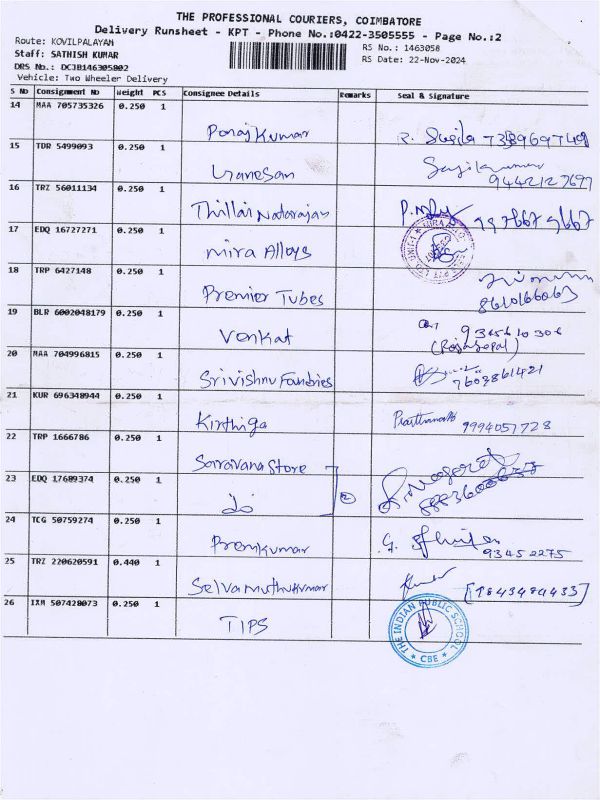 THE PROFESSIONAL COURIERS, COIMBATORE
Delivery Runsheet - KPT - Phone No.:0422-3505555 - Page No.:2
Route: KOVILPALAYAM RS No.: 1463058
Staff: SATHISH KUMAR RS Date: 22-Nov-2024
DRS No.: DCJB146305802
Vehicle: Two Wheeler Delivery
S No Consignment No Weight PCS Consignee Details Remarks Seal & Signature
14 MAA 705735326 0.250 1
Ponraj Kumar
15 TDR 5499093 0.250 1
Ganesan 9442127697
16 TRZ 56011134 0.250 1
Thillai Natarajan
17 EDQ 16727271 0.250 1
Mira Alloys
18 TRP 6427148 0.250 1
Premier Tubes 8610166063
19 BLR 6002048179 0.250 1
Venkat (Rajagopal)
20 MAA 704996815 0.250 1
Srivishnu Foundries 7603861421
21 KUR 696348944 0.250 1
Kirthiga 9994051728
22 TRP 1666786 0.250 1
Saravana Store
23 EDQ 17689374 0.250 1
do 2
24 TCG 50759274 0.250 1
Premkumar 93452275
25 TRZ 220620591 0.440 1
Selvamuthukumar
26 IXM 507428073 0.250 1
TIPS
THE INDIAN PUBLIC SCHOOL
CBE